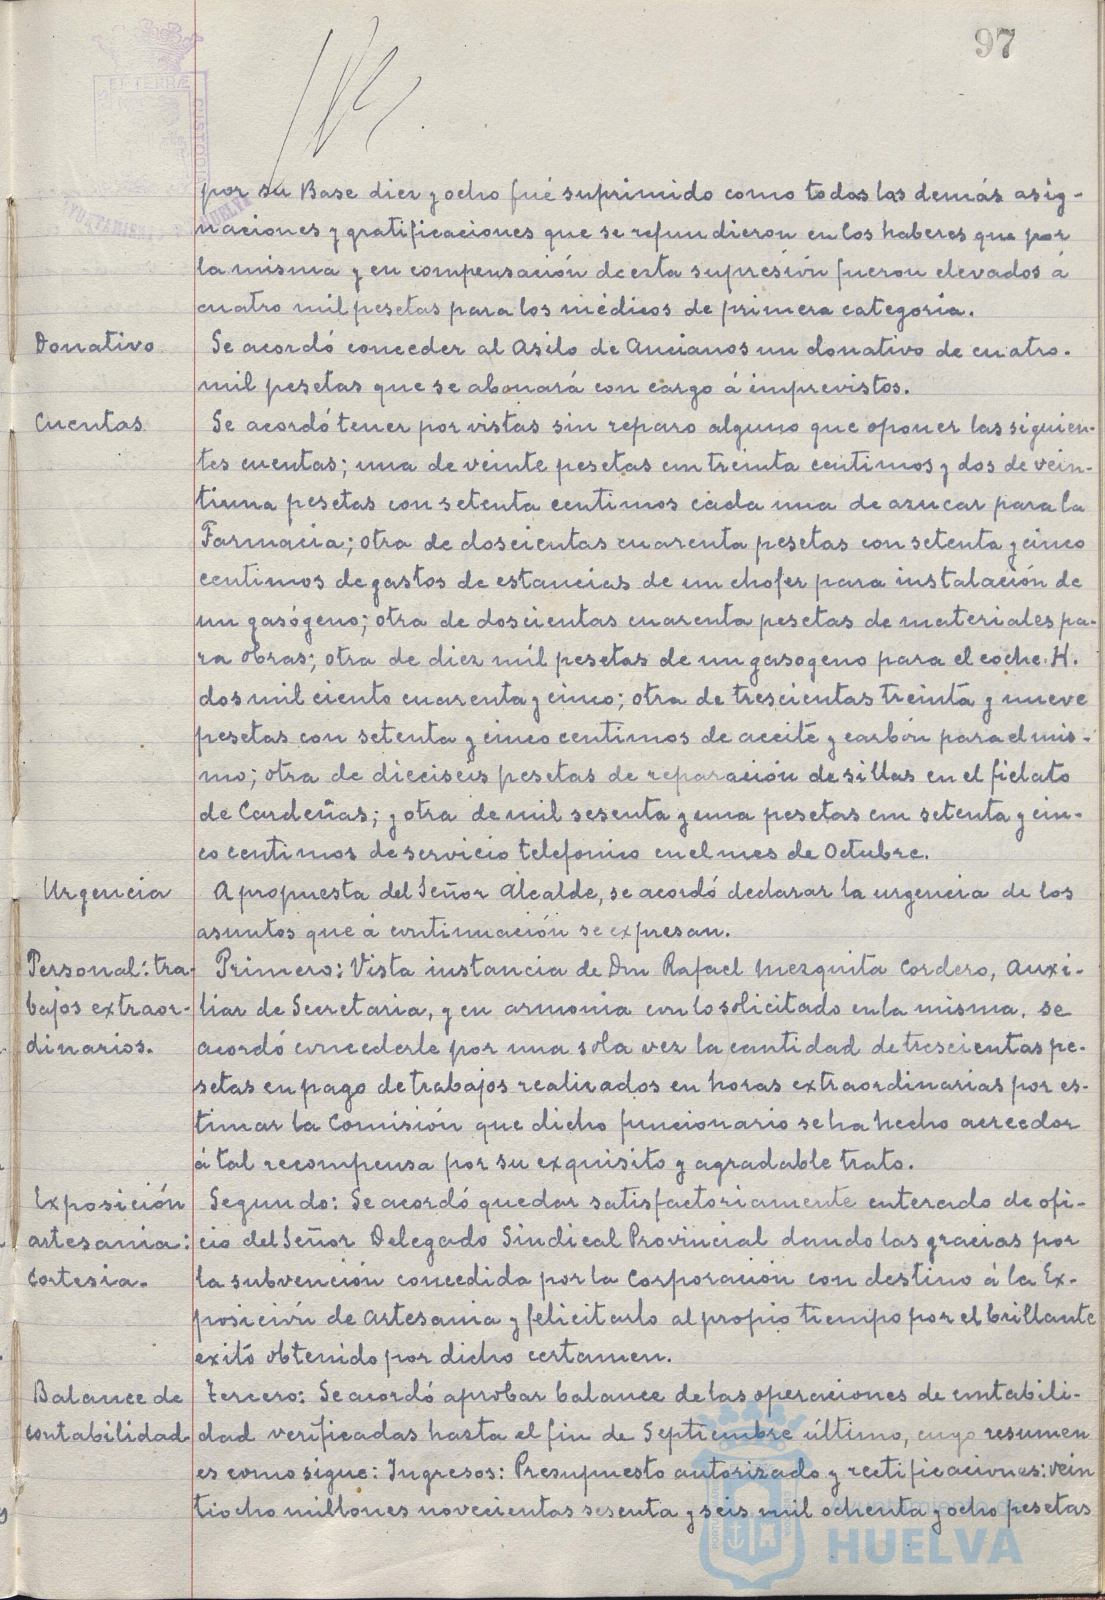 97
ET TERRÆ
CUSTODI
AYUNTAMIENTO HUELVA
por su Base diez y ocho fué suprimido como todas las demás asig-
naciones y gratificaciones que se refundieron en los haberes que por
la misma y en compensación de esta supresión fueron elevados á
cuatro mil pesetas para los médicos de primera categoría.
Donativo
Se acordó conceder al Asilo de Ancianos un donativo de cuatro
mil pesetas que se abonará con cargo á imprevistos.
Cuentas
Se acordó tener por vistas sin reparo alguno que oponer las siguien-
tes cuentas; una de veinte pesetas con treinta centimos y dos de vein-
tiuna pesetas con setenta centimos cada una de azucar para la
Farmacia; otra de doscientas cuarenta pesetas con setenta y cinco
centimos de gastos de estancias de un chofer para instalación de
un gasógeno; otra de doscientas cuarenta pesetas de materiales pa-
ra obras; otra de diez mil pesetas de un gasogeno para el coche H.
dos mil ciento cuarenta y cinco; otra de trescientas treinta y nueve
pesetas con setenta y cinco centimos de aceite y carbón para el mis-
mo; otra de dieciseis pesetas de reparación de sillas en el fielato
de Cardeñas; y otra de mil sesenta y una pesetas con setenta y cin-
co centimos de servicio telefonico en el mes de Octubre.
Urgencia
A propuesta del Señor Alcalde, se acordó declarar la urgencia de los
asuntos que á continuación se expresan.
Personal: tra-
bajos extraor-
dinarios.
Primero: Vista instancia de Don Rafael Mezquita Cordero, Auxi-
liar de Secretaria, y en armonia con lo solicitado en la misma, se
acordó concederle por una sola vez la cantidad de trescientas pe-
setas en pago de trabajos realizados en horas extraordinarias por es-
timar la Comisión que dicho funcionario se ha hecho acreedor
á tal recompensa por su exquisito y agradable trato.
Exposición
artesania:
cortesia.
Segundo: Se acordó quedar satisfactoriamente enterado de ofi-
cio del Señor Delegado Sindical Provincial dando las gracias por
la subvención concedida por la Corporación con destino á la Ex-
posición de Artesania y felicitarlo al propio tiempo por el brillante
exitó obtenido por dicho certamen.
Balance de
contabilidad
Tercero: Se acordó aprobar balance de las operaciones de contabili-
dad verificadas hasta el fin de Septiembre último, cuyo resumen
es como sigue: Ingresos: Presupuesto autorizado y rectificaciones: vein
tiocho millones novecientas sesenta y seis mil ochenta y ocho pesetas
Ayuntamiento de
HUELVA